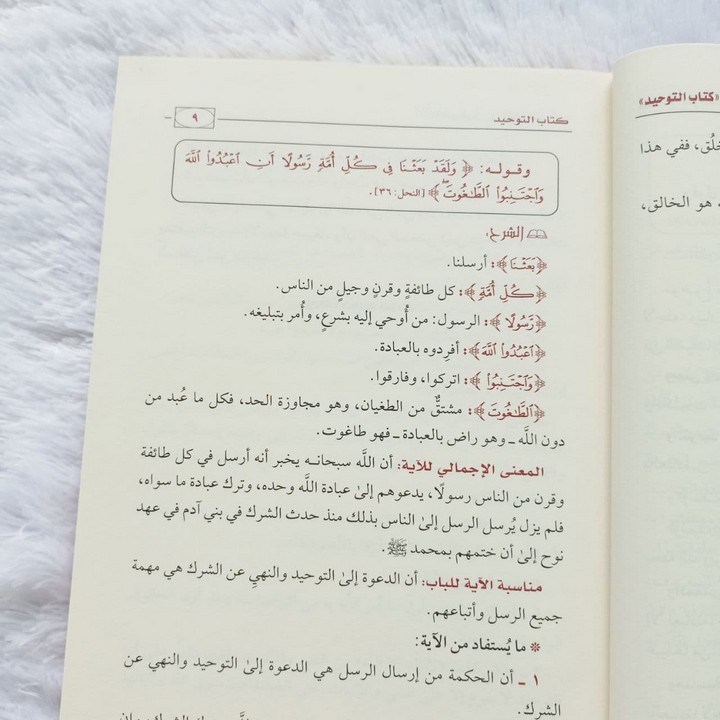 كتاب التوحيد
٩
وقوله: ﴿وَلَقَدْ بَعَثْنَا فِي كُلِّ أُمَّةٍ رَّسُولًا أَنِ اعْبُدُوا اللَّهَ
وَاجْتَنِبُوا الطَّاغُوتَ﴾ [النحل: ٣٦].
الشرح:
﴿بَعَثْنَا﴾: أرسلنا.
﴿كُلِّ أُمَّةٍ﴾: كل طائفةٍ وقرنٍ وجيلٍ من الناس.
﴿رَّسُولًا﴾: الرسول: من أُوحي إليه بشرعٍ، وأُمر بتبليغه.
﴿اعْبُدُوا اللَّهَ﴾: أفرِدوه بالعبادة.
﴿وَاجْتَنِبُوا﴾: اتركوا، وفارقوا.
﴿الطَّاغُوتَ﴾: مشتقٌّ من الطغيان، وهو مجاوزة الحد، فكل ما عُبد من
دون اللَّه ـ وهو راض بالعبادة ـ فهو طاغوت.
المعنى الإجمالي للآية: أن اللَّه سبحانه يخبر أنه أرسل في كل طائفة
وقرن من الناس رسولًا، يدعوهم إلىٰ عبادة اللَّه وحده، وترك عبادة ما سواه،
فلم يزل يُرسل الرسل إلىٰ الناس بذلك منذ حدث الشرك في بني آدم في عهد
نوح إلىٰ أن ختمهم بمحمد ﷺ.
مناسبة الآية للباب: أن الدعوة إلىٰ التوحيد والنهي عن الشرك هي مهمة
جميع الرسل وأتباعهم.
* ما يُستفاد من الآية:
١ ـ أن الحكمة من إرسال الرسل هي الدعوة إلىٰ التوحيد والنهي عن
الشرك.
«كتاب التوحيد»
ففي هذا
هو الخالق،